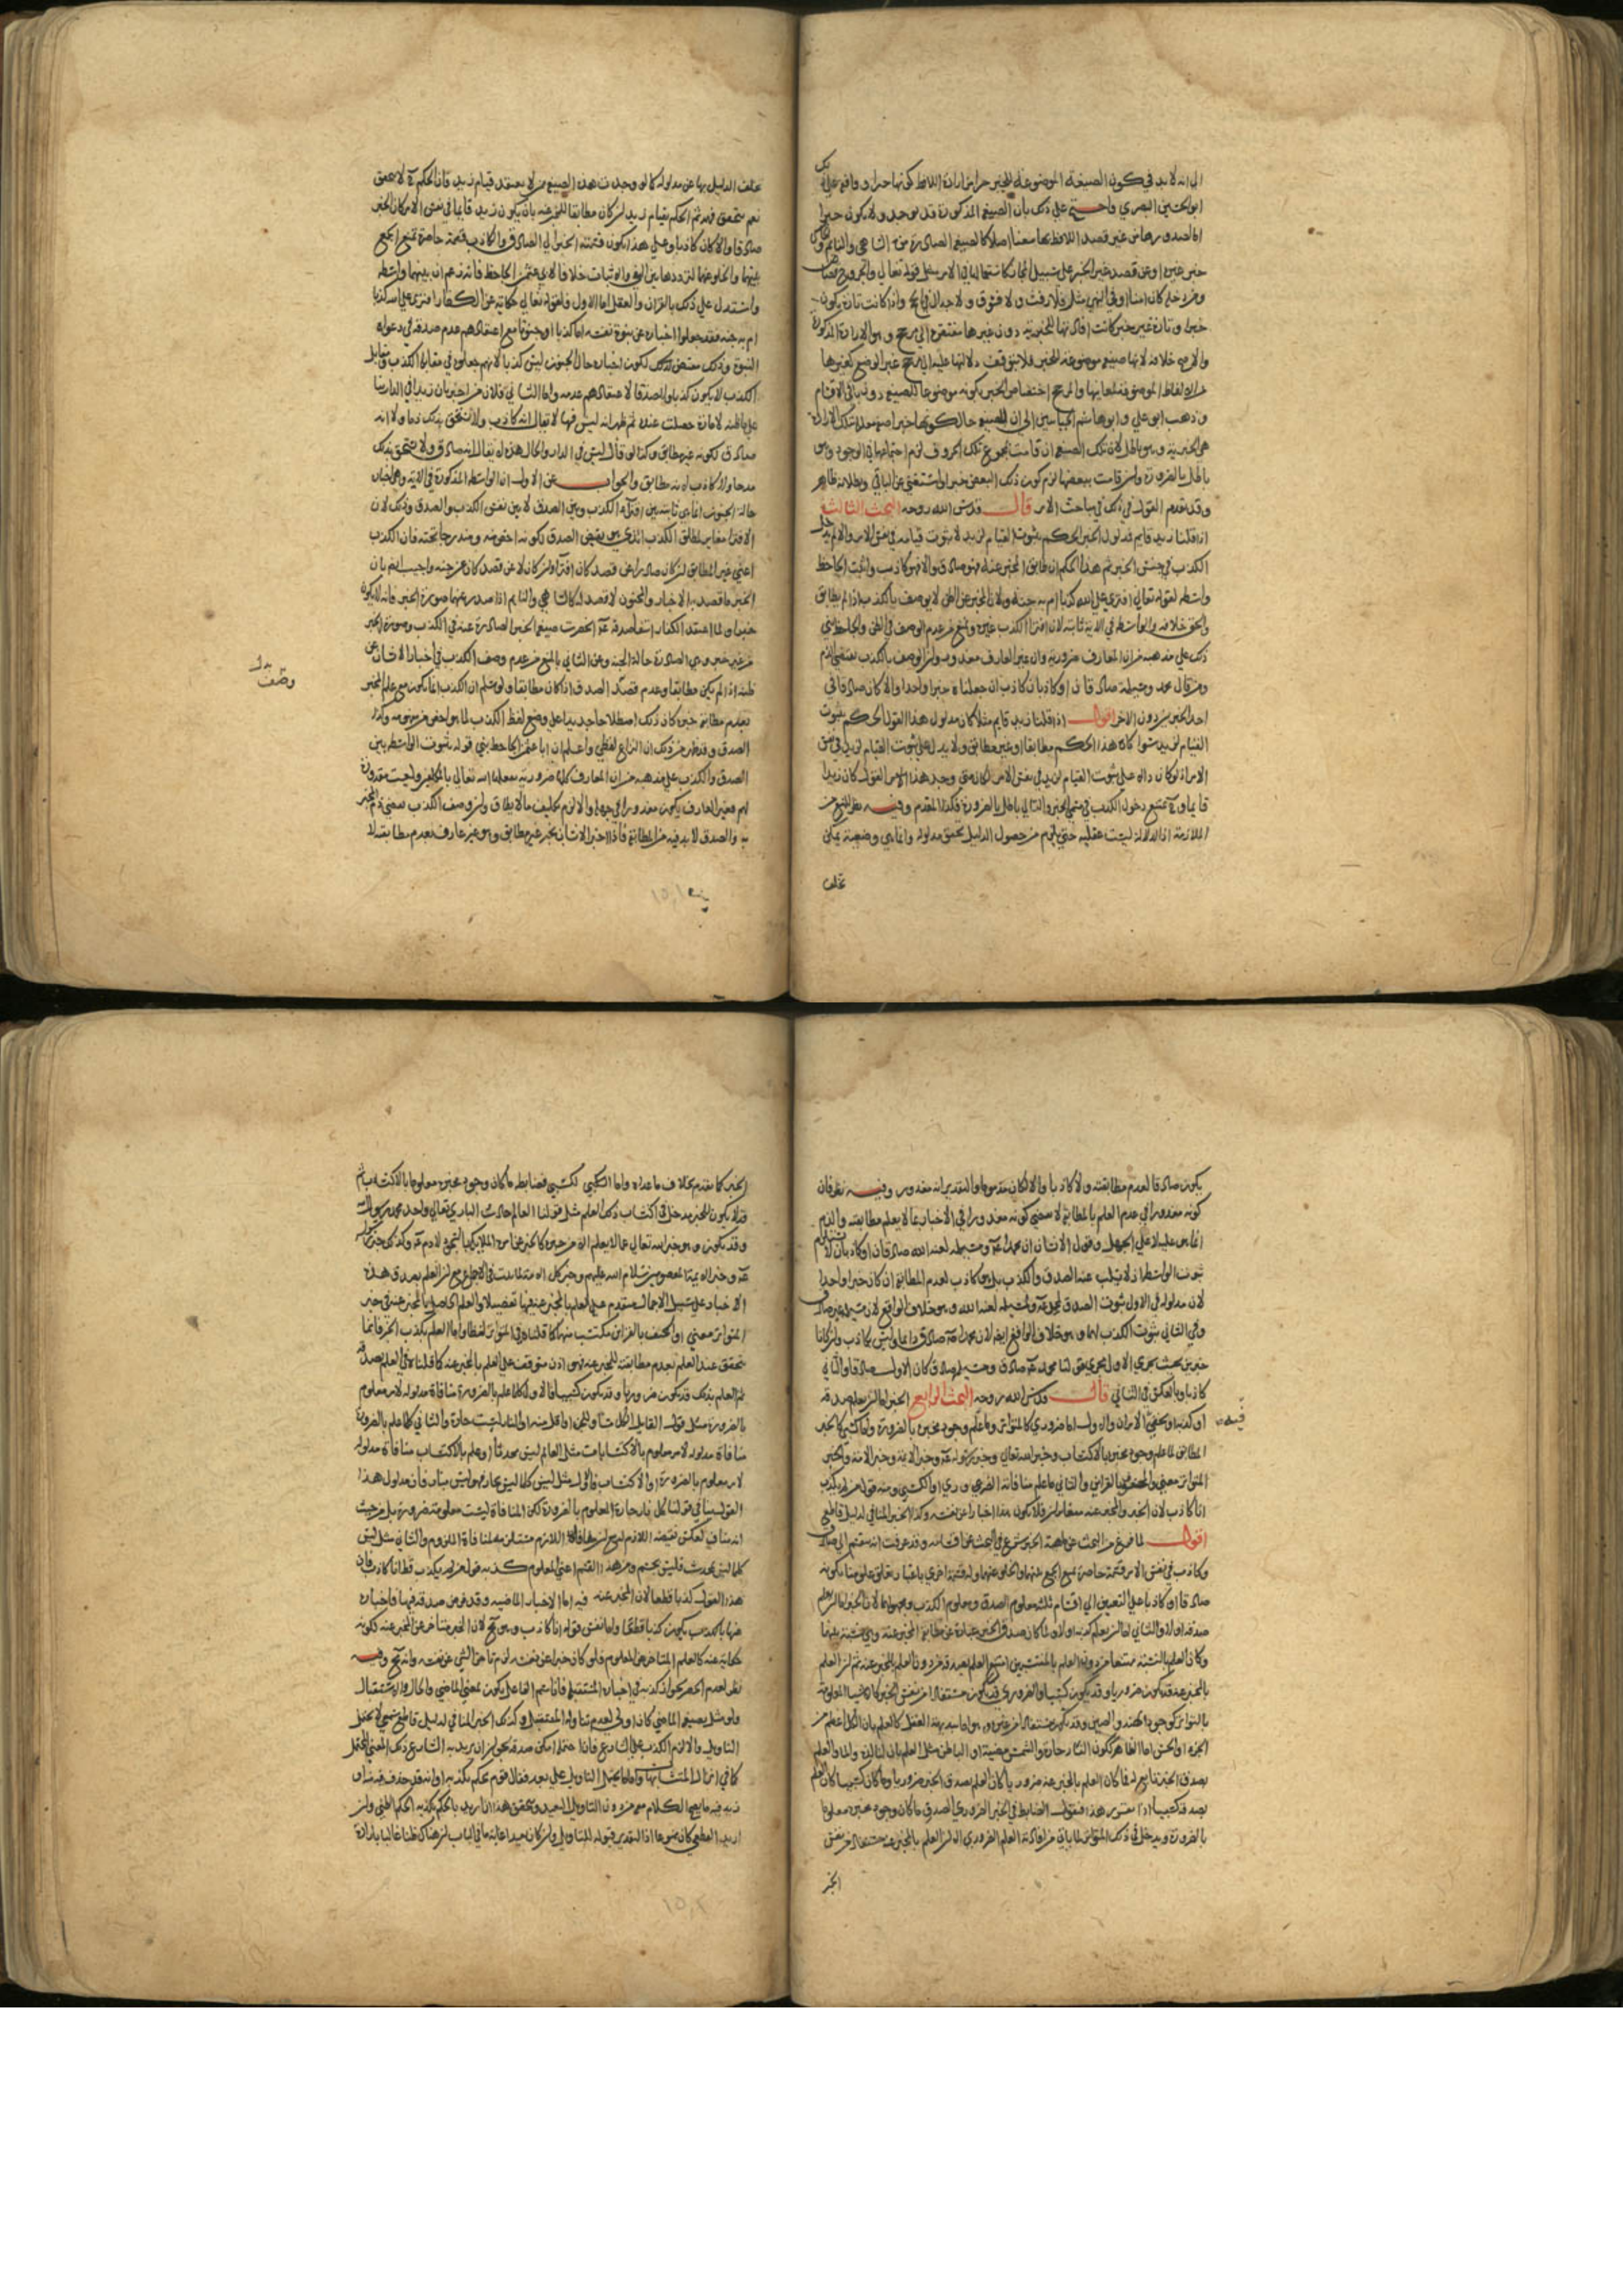 الي انه لا بد في كون الصيغة الموضوعة للخبر خبرا من ارادة اللافظ كونها خبرا ووافقه علي ذلك
ابو الحسين البصري واحتج علي ذلك بان الصيغة المذكورة قد توجد ولا يكون خبرا
اما لصدورها من غير قصد اللافظ بها معنا اصلا كالصيغة الصادرة من الساهي والنايم
غير الخبر علي سبيل المجاز كاستعمالها في الامر مثل قوله تعالي والجروح قصاص
ومن دخله كان امنا او في النهي مثل فلا رفث ولا فسوق ولا جدال في الحج واذا كانت تارة يكون
خبرا وتارة غير خبر كانت افادتها للخبرية دون غيرها مفتقرة الي مرجح وهو الارادة المذكورة
والاصح خلافه لانها صيغة موضوعة للخبر فلا يتوقف دلالتها عليه الي مرجح غير الوضع كغيرها
من الالفاظ الموضوعة لمعانيها والمرجح اختصاص الخبر بكونه موضوعا للصيغة دون باقي الاقسام
وذهب ابو علي وابو هاشم الجبائيين الي ان للصيغة حال كونها خبرا صفة معللة بتلك الارادة
هي الخبرية وهو باطل لان تلك الصفة ان قامت بمجموع تلك الحروف لزم اجتماعها في الوجود وهو
باطل بالضرورة وان قامت ببعضها لزم كون ذلك البعض خبرا واستغني عن الباقي وبطلانه ظاهر
وقد تقدم القول في ذلك في مباحث الامر قال قدس الله روحه البحث الثالث
اذا قلنا زيد قايم فمدلول الخبر الحكم بثبوت القيام لزيد لا ثبوت قيامه في نفس الامر والا لم يدخل
الكذب في جنس الخبر ثم هذا الحكم ان طابق المخبر عنه فهو صادق والا فهو كاذب واثبت الجاحظ
واسطة لقوله تعالي افتري علي الله كذبا ام به جنة ولان المخبر عن الظن لا يوصف بالكذب اذا لم يطابق
والحق خلافه والواسطة في الاية ثابتة لان افتراء الكذب غيره ونمنع من عدم الوصف في الظن والجاحظ بني
ذلك علي مذهبه من ان المعارف ضرورية وان غير العارف معذور وان الوصف بالكذب يقتضي الذم
ومن قال محمد ومسيلمة صادقان او كاذبان كاذب ان جعلناه خبرا واحدا والا كان صادقا في
احد الخبرين دون الاخر اقول اذا قلنا زيد قايم مثلا كان مدلول هذا القول الحكم بثبوت
القيام لزيد سواء كان هذا الحكم مطابقا او غير مطابق ولا يدل علي ثبوت القيام لزيد في نفس
الامر اذ لو كان دالا علي ثبوت القيام لزيد في نفس الامر لكان متي وجد هذا القول كان زيدا
قايما وح يمتنع دخول الكذب في مسمي الخبر والتالي باطل بالضرورة فكذا المقدم وفيه نظر للمنع من
الملازمة اذ الدلالة ليست عقلية حتي يلزم من حصول الدليل تحقق مدلوله وانما هي وضعية يمكن
تخلف
تخلف الدليل بها عن مدلوله كما لو وجدت هذه الصيغة ممن لا يعتقد قيام زيد فان الحكم ح لا يتحقق
نعم متي تحقق فهم ثم الحكم بقيام زيد ان كان مطابقا للمخبر عنه بان يكون زيد قايما في نفس الامر كان الخبر
صادقا والا كان كاذبا وعلي هذا يكون قسمة الخبر الي الصادق والكاذب قسمة حاصرة تمنع الجمع
بينهما والخلو عنهما لترددها بين النفي والاثبات خلافا لابي عثمن الجاحظ فانه زعم ان بينهما واسطة
واستدل علي ذلك بالقران والعقل اما الاول فلقوله تعالي حكاية عن الكفار افتري علي الله كذبا
ام به جنة فقد جعلوا اخباره عن نبوة نفسه اما كذبا او جنونا مع اعتقادهم عدم صدقه في دعواه
النبوة وذلك يقتضي كون اخباره حال الجنون ليس كذبا لانهم جعلوه في مقابلة الكذب ومقابل
الكذب لا يكون كذبا ولا صدقا لاعتقادهم عدمه واما الثاني فلان من اخبر بان زيدا في الدار بنا
علي ظنه لامارة حصلت عنده ثم ظهر انه ليس فيها لا يقال انه كاذب ولا يستحق بذلك ذما ولا انه
صادق لكونه غير مطابق وكذا لو قال ليس في الدار والحال هذه لم يقال انه صادق ولا يستحق بذلك
مدحا ولا كاذب لانه مطابق والجواب عن الاول ان الواسطة المذكورة في الاية وهي اخبار
حالة الجنون انما هي ثابتة بين افتراء الكذب وبين الصدق لا بين نفس الكذب والصدق وذلك لان
الافترا مغاير لمطلق الكذب الذي هو نقيض الصدق لكونه اخص منه ومندرجا تحته فان الكذب
اعني غير المطابق ان كان صادرا عن قصد كان افترا وان كان لا عن قصد كان عن جنة واجيب ايضا بان
الخبر ما قصد به الاخبار والمجنون لا قصد له كالساهي والنايم اذا صدر عنهما صورة الخبر فانه لا يكون
خبرا ولما اعتقد الكفار انتفا صدقه عم انحصرت صيغ الخبر الصادرة عنه في الكذب وصورة الخبر
من غير خبر وهي الصادرة حالة الجنة وعن الثاني بالمنع من عدم وصف الكذب في اخبار الانسان عن
ظنه اذا لم يكن مطابقا وعدم قصد الصدق اذا كان مطابقا ولو سلم ان الكذب انما يكون مع علم المخبر
بدل وصف
بعدم مطابقة خبره كان ذلك اصطلاحا جديدا علي وضع لفظ الكذب لما هو اخص من مفهومه وكذا
الصدق وقد ظهر من ذلك ان النزاع لفظي واعلم ان ابا عثمن الجاحظ بني قوله بثبوت الواسطة بين
الصدق والكذب علي مذهبه من ان المعارف كلها ضرورية يفعلها الله تعالي بالمكلفين وليست مقدورة
لهم فغير العارف يكون معذورا في جهله والا لزم تكليف ما لا يطاق وان وصف الكذب يقتضي ذم المخبر
به والصدق لا بد فيه من المطابقة فاذا اخبر الانسان بخبر غير مطابق وهو غير عارف بعدم مطابقته لا
يكون صادقا لعدم مطابقته ولا كاذبا والا لكان مذموما والتقدير انه معذور وفيه نظر فان
كونه معذورا في عدم العلم بالمطابقة لا يقتضي كونه معذورا في الاخبار عما لا يعلم مطابقته والذم
انما هو عليه لا علي الجهل وقول الانسان ان محمدا عم ومسيلمة لعنه الله صادقان او كاذبان لا يستلزم
ثبوت الواسطة اذ لا يسلب عنه الصدق والكذب بل هو كاذب لعدم المطابقة ان كان خبرا واحدا
لان مدلوله في الاول ثبوت الصدق لمحمد عم ومسيلمة لعنه الله وهو خلاف الواقع لان مسيلمة غير صادق
وفي الثاني ثبوت الكذب لهما وهو خلاف الواقع ايضا لان محمدا عم صادق دايما وليس بكاذب وان كانا
خبرين بحيث يجري الاول مجري قولنا محمد عم صادق ومسيلمة صادق كان الاول صادقا والثاني
كاذبا وبالعكس في الثاني قال قدس الله روحه البحث الرابع الخبر اما ان يعلم صدقه
او كذبه او يخفي الامران والاول اما ضروري كالمتواتر وما علم وجود مخبره بالضرورة واما كسبي كالخبر
فيه
المطابق لما علم وجود مخبره بالاكتساب وخبر الله تعالي وخبر رسوله عم وخبر الايمة وخبر الامة والخبر
المتواتر معني والمحتف بالقراين والثاني ما علم منافاته الضروري او الكسبي ومنه قول من لم يكذب
انا كاذب لان الخبر والمخبر عنه متغايران فلا يكون هذا اخبارا عن نفسه وكذا الخبر المنافي لدليل قاطع
اقول لما فرغ من البحث عن ماهية الخبر شرع في البحث عن اقسامه وقد عرفت انه منقسم الي صادق
وكاذب في نفس الامر قسمة حاصرة تمنع الجمع بينهما والخلو عنهما وله قسمة اخري باعتبار تعلق علومنا بكونه
صادقا او كاذبا علي التعيين الي اقسام ثلثة معلوم الصدق ومعلوم الكذب ومجهولهما لان الخبر اما ان يعلم
صدقه او لا والثاني اما ان يعلم كذبه او لا ولما كان صدق الخبر عبارة عن مطابقة المخبر عنه وهي نسبة بينهما
وكان العلم بالنسبة ممتنعا من دون العلم بالمنتسبين امتنع العلم بصدقه من دون العلم بالمخبر عنه ثم ان العلم
بالمخبر عنه قد يكون ضروريا وقد يكون كسبيا والضروري قد يكون مستفادا من نفس الخبر كالاشيا المعلومة
بالتواتر كوجود الهند والصين وقد يكون مستفادا من غيره وهو اما بديهة العقل كالعلم بان الكل اعظم من
الجزء او الحس اما الظاهر ككون النار حارة والشمس مضيئة او الباطن مثل العلم بان لنا لذة والما والعلم
بصدق الخبر تابع لها فما كان العلم بالمخبر عنه ضروريا كان العلم بصدق الخبر ضروريا وما كان كسبيا كان العلم
بصدقه كسبيا اذا تقرر هذا فنقول الضابط في الخبر الضروري الصدق ما كان وجود مخبره معلوما
بالضرورة ويدخل في ذلك المتواتر لما ياتي من افادته العلم الضروري الا ان العلم بالمخبر عنه مستفاد من نفس
الخبر
الخبر كما تقدم بخلاف ما عداه واما الكسبي فضابطه ما كان وجود مخبره معلوما بالاكتساب ثم
قد لا يكون للخبر مدخل في اكتساب ذلك العلم مثل قولنا العالم حادث الباري تعالي واحد محمد رسول الله
وقد يكون وهو خبر الله تعالي عما لا يعلم الا من خبره كالخبر عن امر الملايكة بالسجود لادم عم وكذلك خبر رسوله
عم وخبر الايمة المعصومين سلام الله عليهم وخبر كل الامة
الاخبار علي سبيل الاجمال متقدم علي العلم بالمخبر عنه فيها تفصيلا والعلم الحاصل بالمخبر عنه في خبر
المتواتر معني او المحتف بالقراين مكتسب منهما كما قلناه في المتواتر لفظا واما العلم بكذب الخبر فانما
يتحقق عند العلم بعدم مطابقته للمخبر عنه فهو اذن متوقف علي العلم بالمخبر عنه كما قلناه في العلم بصدقه
ثم العلم بذلك قد يكون ضروريا وقد يكون كسبيا فالاول كلما علم بالضرورة منافاة مدلوله لامر معلوم
بالضرورة مثل قول القايل الكل مساو للجزء او اقل منه او النار ليست حارة والثاني كلما علم بالضرورة
منافاة مدلوله لامر معلوم بالاكتساب مثل العالم ليس محدثا او علم بالاكتساب منافاة مدلوله
لامر معلوم بالضرورة او الاكتساب فالاول مثل ليس كلما ليس بحار فهو ليس بنار فان مدلول هذا
القول ينافي قولنا كل نار حارة المعلوم بالضرورة لكن المنافاة ليست معلومة بضرورة بل من حيث
انه مناف لعكس نقيضه اللازم له ومنافاة اللازم مستلزمة لمنافاة الملزوم والثاني مثل ليس
كلما ليس بمحدث فليس بجسم ومن هذا القسم اعني المعلوم كذبه قول من لم يكذب قط انا كاذب فان
هذا القول كذبا قطعا لان المخبر عنه فيه اما الاخبار الماضية وقد فرض صدقه فيها فاخباره
عنها بالكذب يكون كذبا قطعا واما نفس قوله انا كاذب وهو مح لان الخبر متاخر عن المخبر عنه لكونه
حكاية عنه كالعلم المتاخر عن المعلوم فلو كان خبرا عن نفسه لزم تاخر الشي عن نفسه وانه مح وفيه
نظر لعدم الحصر لجواز كذبه في اخباره المستقبلة فان اسم الفاعل يكون بمعني الماضي والحال والاستقبال
ولو مثل بصيغة الماضي كان اولي لعدم تناوله المستقبل وكذلك الخبر المنافي لدليل قاطع سمعي لا يحتمل
التاويل والا لزم الكذب علي الشارع فاذا احتمل امكن صدقه بجواز ان يريد به الشارع ذلك المعني المحتمل
كما في انزال المتشابهات واما ما يحتمل التاويل علي بعد فقال قوم يحكم بكذبه او انه قد حذف فيه او
زيد فيه ما يصح الكلام معه من دون التاويل البعيد وتحقق هذا ان اريد بالحكم بكذبه الحكم الظني وان
اريد القطعي كان ممنوعا اذ التقدير قبوله للتاويل وان كان بعيدا غاية ما في الباب ان هناك ظنا غالبا بارادة